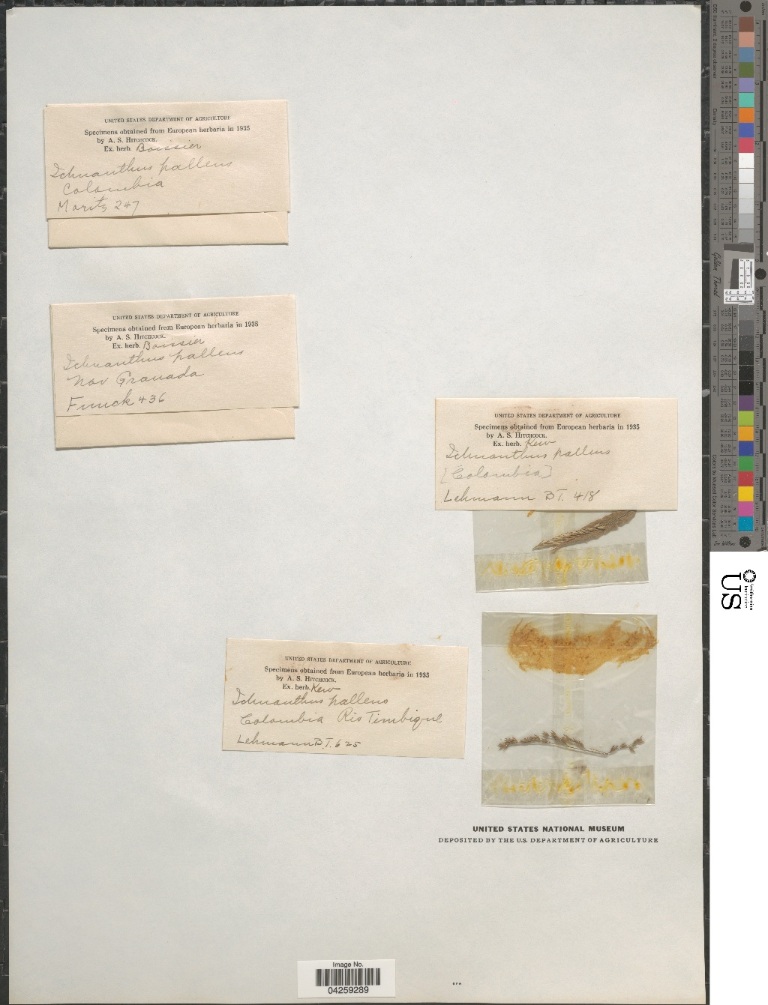 UNITED STATES DEPARTMENT OF AGRICULTURE
Specimens obtained from European herbaria in 1935
by A. S. Hitchcock.
Ex. herb. Boissier
Ichnanthus pallens
Colombia
Moritz 247
UNITED STATES DEPARTMENT OF AGRICULTURE
Specimens obtained from European herbaria in 1935
by A. S. Hitchcock.
Ex. herb. Boissier
Ichnanthus pallens
Nov Granada
Funck 436
UNITED STATES DEPARTMENT OF AGRICULTURE
Specimens obtained from European herbaria in 1935
by A. S. Hitchcock.
Ex. herb. Kew
Ichnanthus pallens
[Colombia]
Lehmann B.T. 418
UNITED STATES DEPARTMENT OF AGRICULTURE
Specimens obtained from European herbaria in 1935
by A. S. Hitchcock.
Ex. herb. Kew
Ichnanthus pallens
Colombia Rio Timbique
Lehmann B.T. 625
UNITED STATES NATIONAL MUSEUM
DEPOSITED BY THE U.S. DEPARTMENT OF AGRICULTURE
Image No.
04259289
US